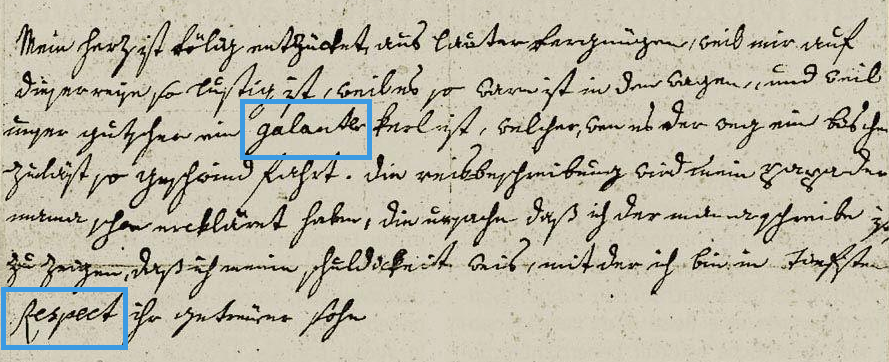 Mein herz ist völig entzücket, aus lauter vergnügen, weil mir auf
dieser reise so lustig ist, weil es so warm ist in den wagen, und weil
unser gutscher ein galanter kerl ist, welcher, wen es der weg ein bischen
zuläst so geschwind fahrt. die reisbeschreibung wird mein papa der
mama schon erckläret haben, die ursache daß ich der mama schreibe ist
zu zeigen, daß ich meine schuldickeit weis, mit der ich bin in Tiefsten
Respect ihr getreuer sohn